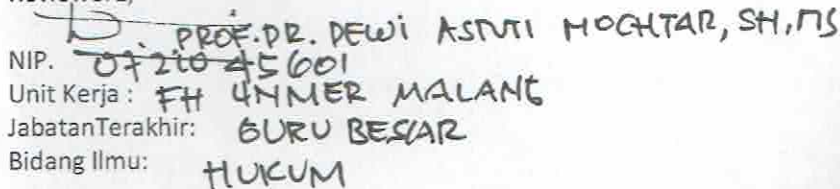 PROF. DR. DEWI ASTUTI MOCHTAR, SH, MS
NIP. 0721045601
Unit Kerja : FH UNMER MALANG
JabatanTerakhir: GURU BESAR
Bidang Ilmu: HUKUM